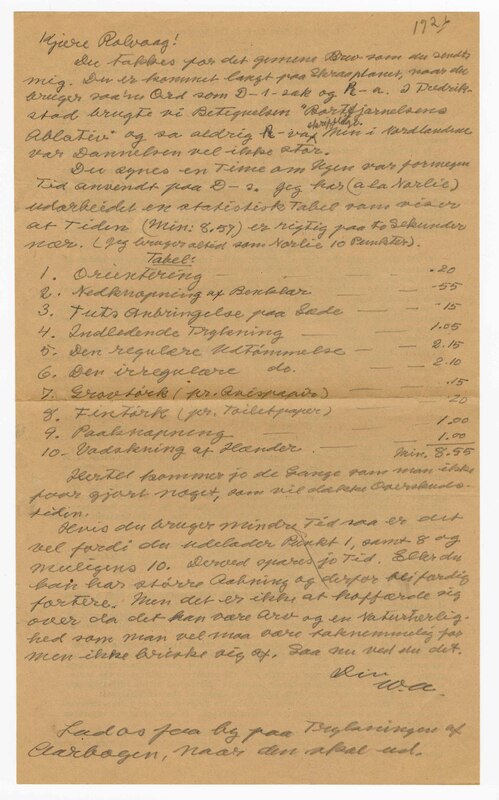 1927
Kjære Rolvaag!
Du takkes for det gemene Brev som du sendte
mig. Du er kommet langt paa Skraaplanet, naar du
bruger saa'n Ord som D-i-sak og R-a. I Fredrik-
stad brugte vi Betegnelsen "Bortfjernelsens
Ablativ" og sa aldrig R-va. Men i Nordlandene
var Dannelsen vel ikke stor.
Du synes en Time om Ugen var formegen
Tid anvendt paa D-s. Jeg har (a la Norlie)
udarbeidet en statistisk Tabel som viser
at Tiden (Min: 8.57) er rigtig paa to Sekunder
nær. (Jeg bruger altid som Norlie 10 Punkter).
Tabel:
1. Orientering — .20
2. Nedknapning af Benklær — .55
3. Futs Anbringelse paa Sæde — .15
4. Indledende Trykning — 1.05
5. Den regulære Udtømmelse — 2.15
6. Den irregulære do. — 2.10
7. Grovtörk (pr. Avispapir) — .15
8. Fintörk (pr. Toiletpaper) — 20
9. Paaknapning — 1.00
10. Vadskning af Hænder — 1.00
Min. 8.55
Hertil kommer jo de Gange som man ikke
faar gjort noget, som vil dække Overskuds-
tiden.
Hvis du bruger mindre Tid saa er det
vel fordi du udelader Punkt 1, samt 8 og
muligens 10. Derved spares jo Tid. Eller du
kan har större Aabning og derfor bli færdig
fortere. Men det er ikke at hoffærde sig
over da det kan være Arv og en Naturherlig-
hed som man vel maa være taknemmelig for
men ikke briske sig af. Saa nu ved du det.
Din
W.A.
Lad os faa by paa Trykningen af
Aarbogen, naar den skal ud.